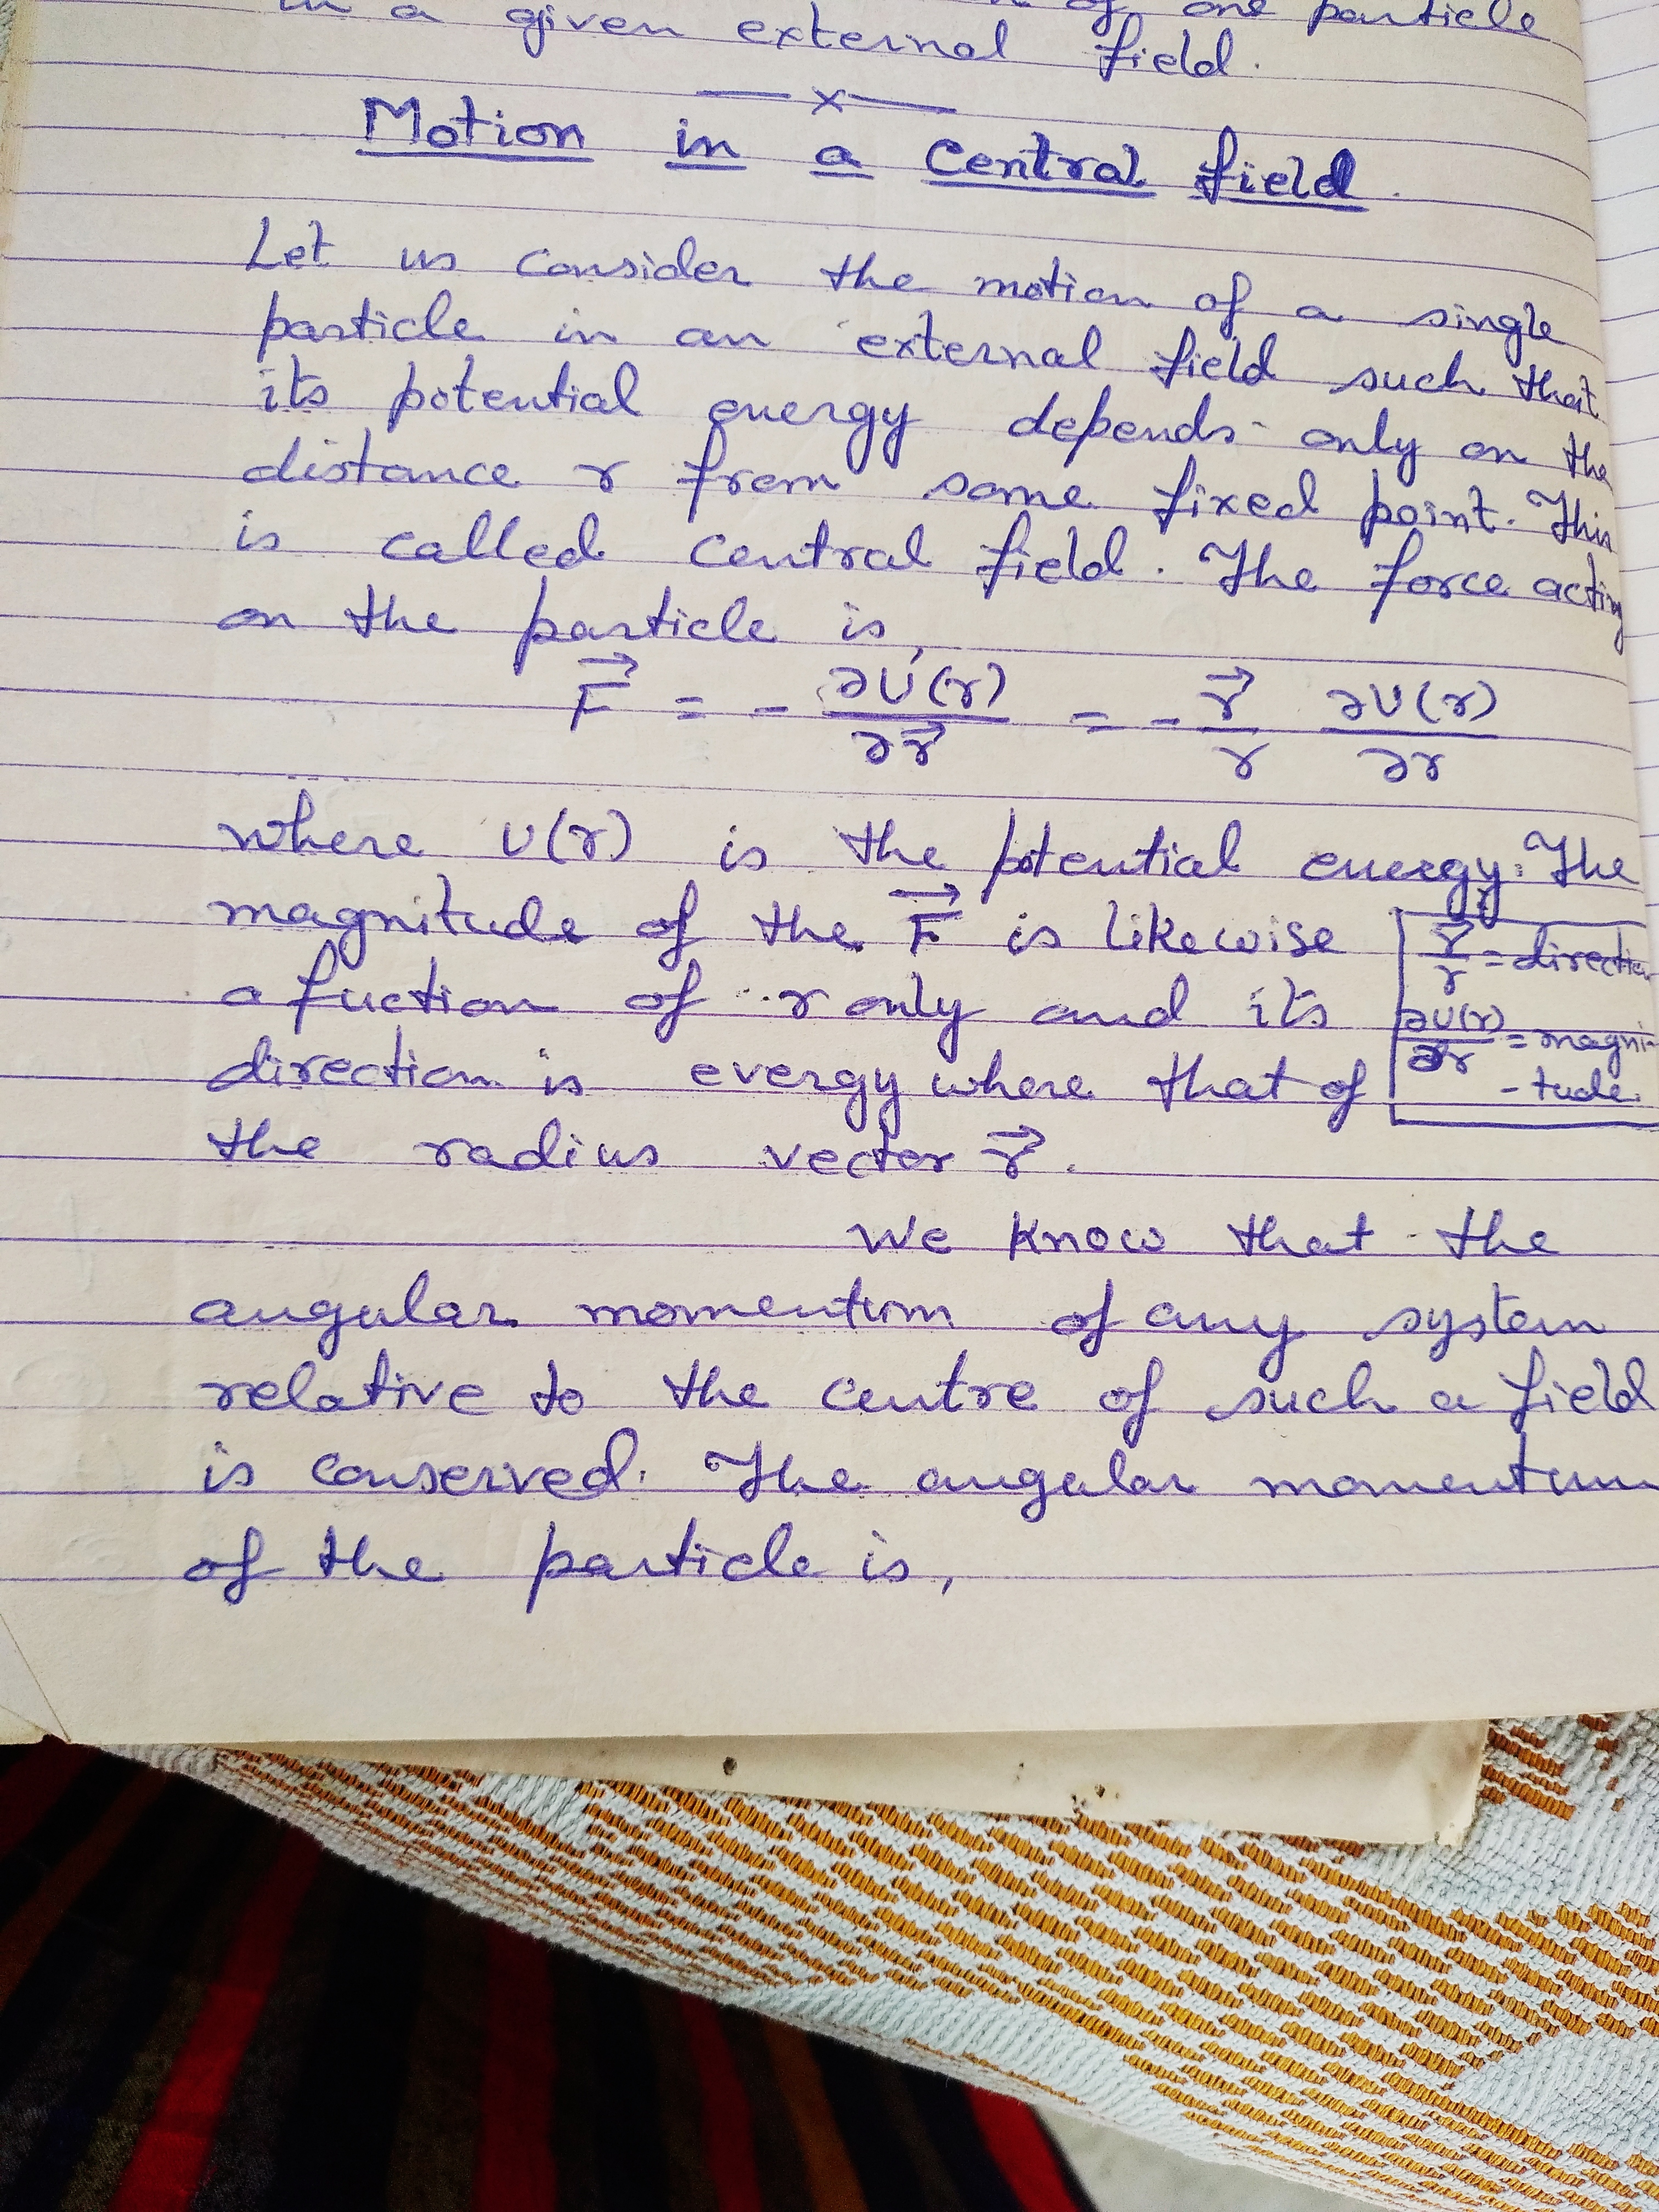 in a given external field.
of one particle
— x —
Motion in a Central field.
Let us consider the motion of a single
particle in an external field such that
its potential energy depends only on the
distance r from some fixed point. This
is called central field. The force acting
on the particle is,
F⃗ = - ∂U(r)/∂r⃗ = - r⃗/r ∂U(r)/∂r
where U(r) is the potential energy. The
magnitude of the F⃗ is likewise
a fuction of r only and its
direction is evergy where that of
the radius vector r⃗.
r⃗/r = direction
∂U(r)/∂r = magni-
-tude.
We know that the
angular momentum of any system
relative to the centre of such a field
is conserved. The angular momentum
of the particle is,